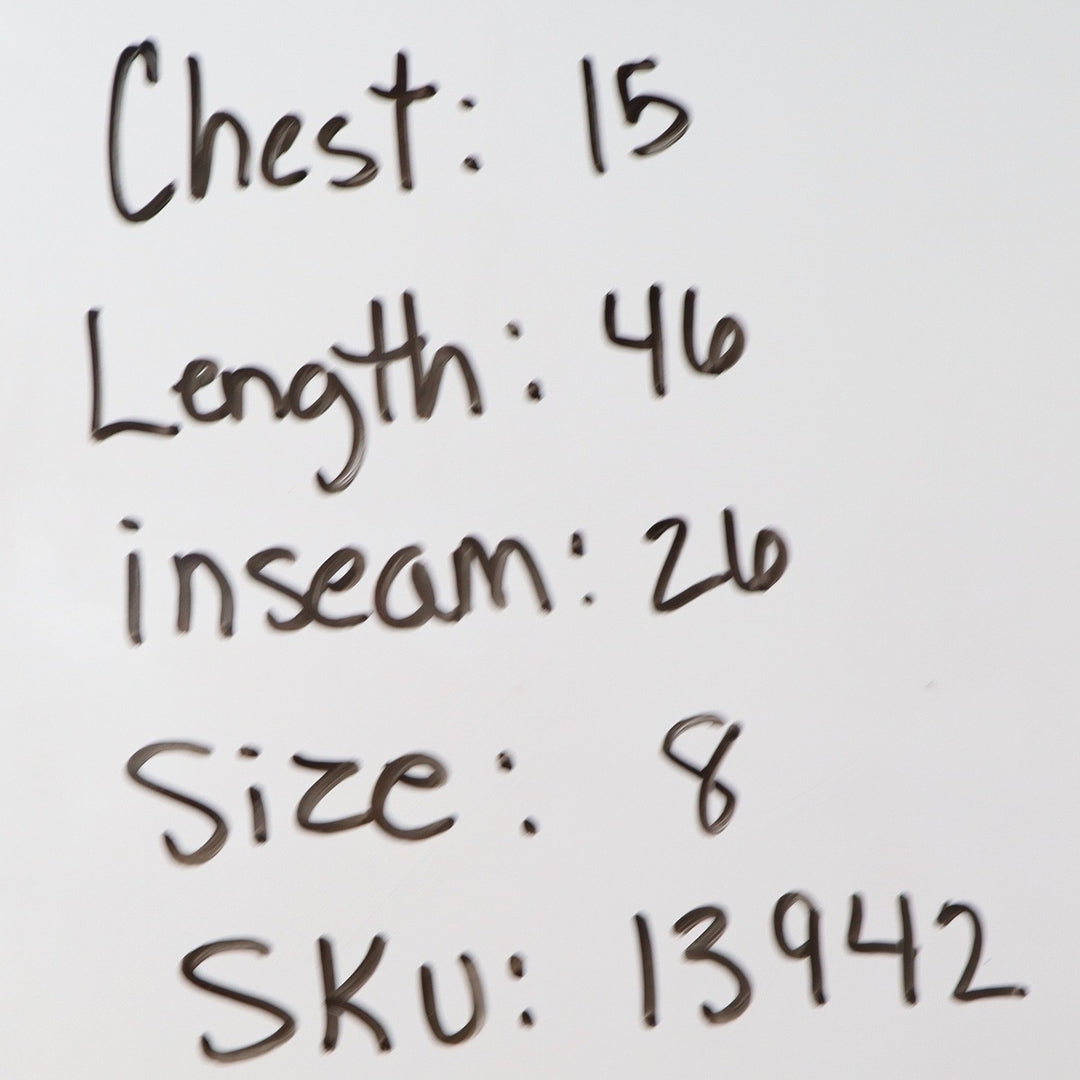 Chest: 15
Length: 46
inseam: 26
Size: 8
SKU: 13942